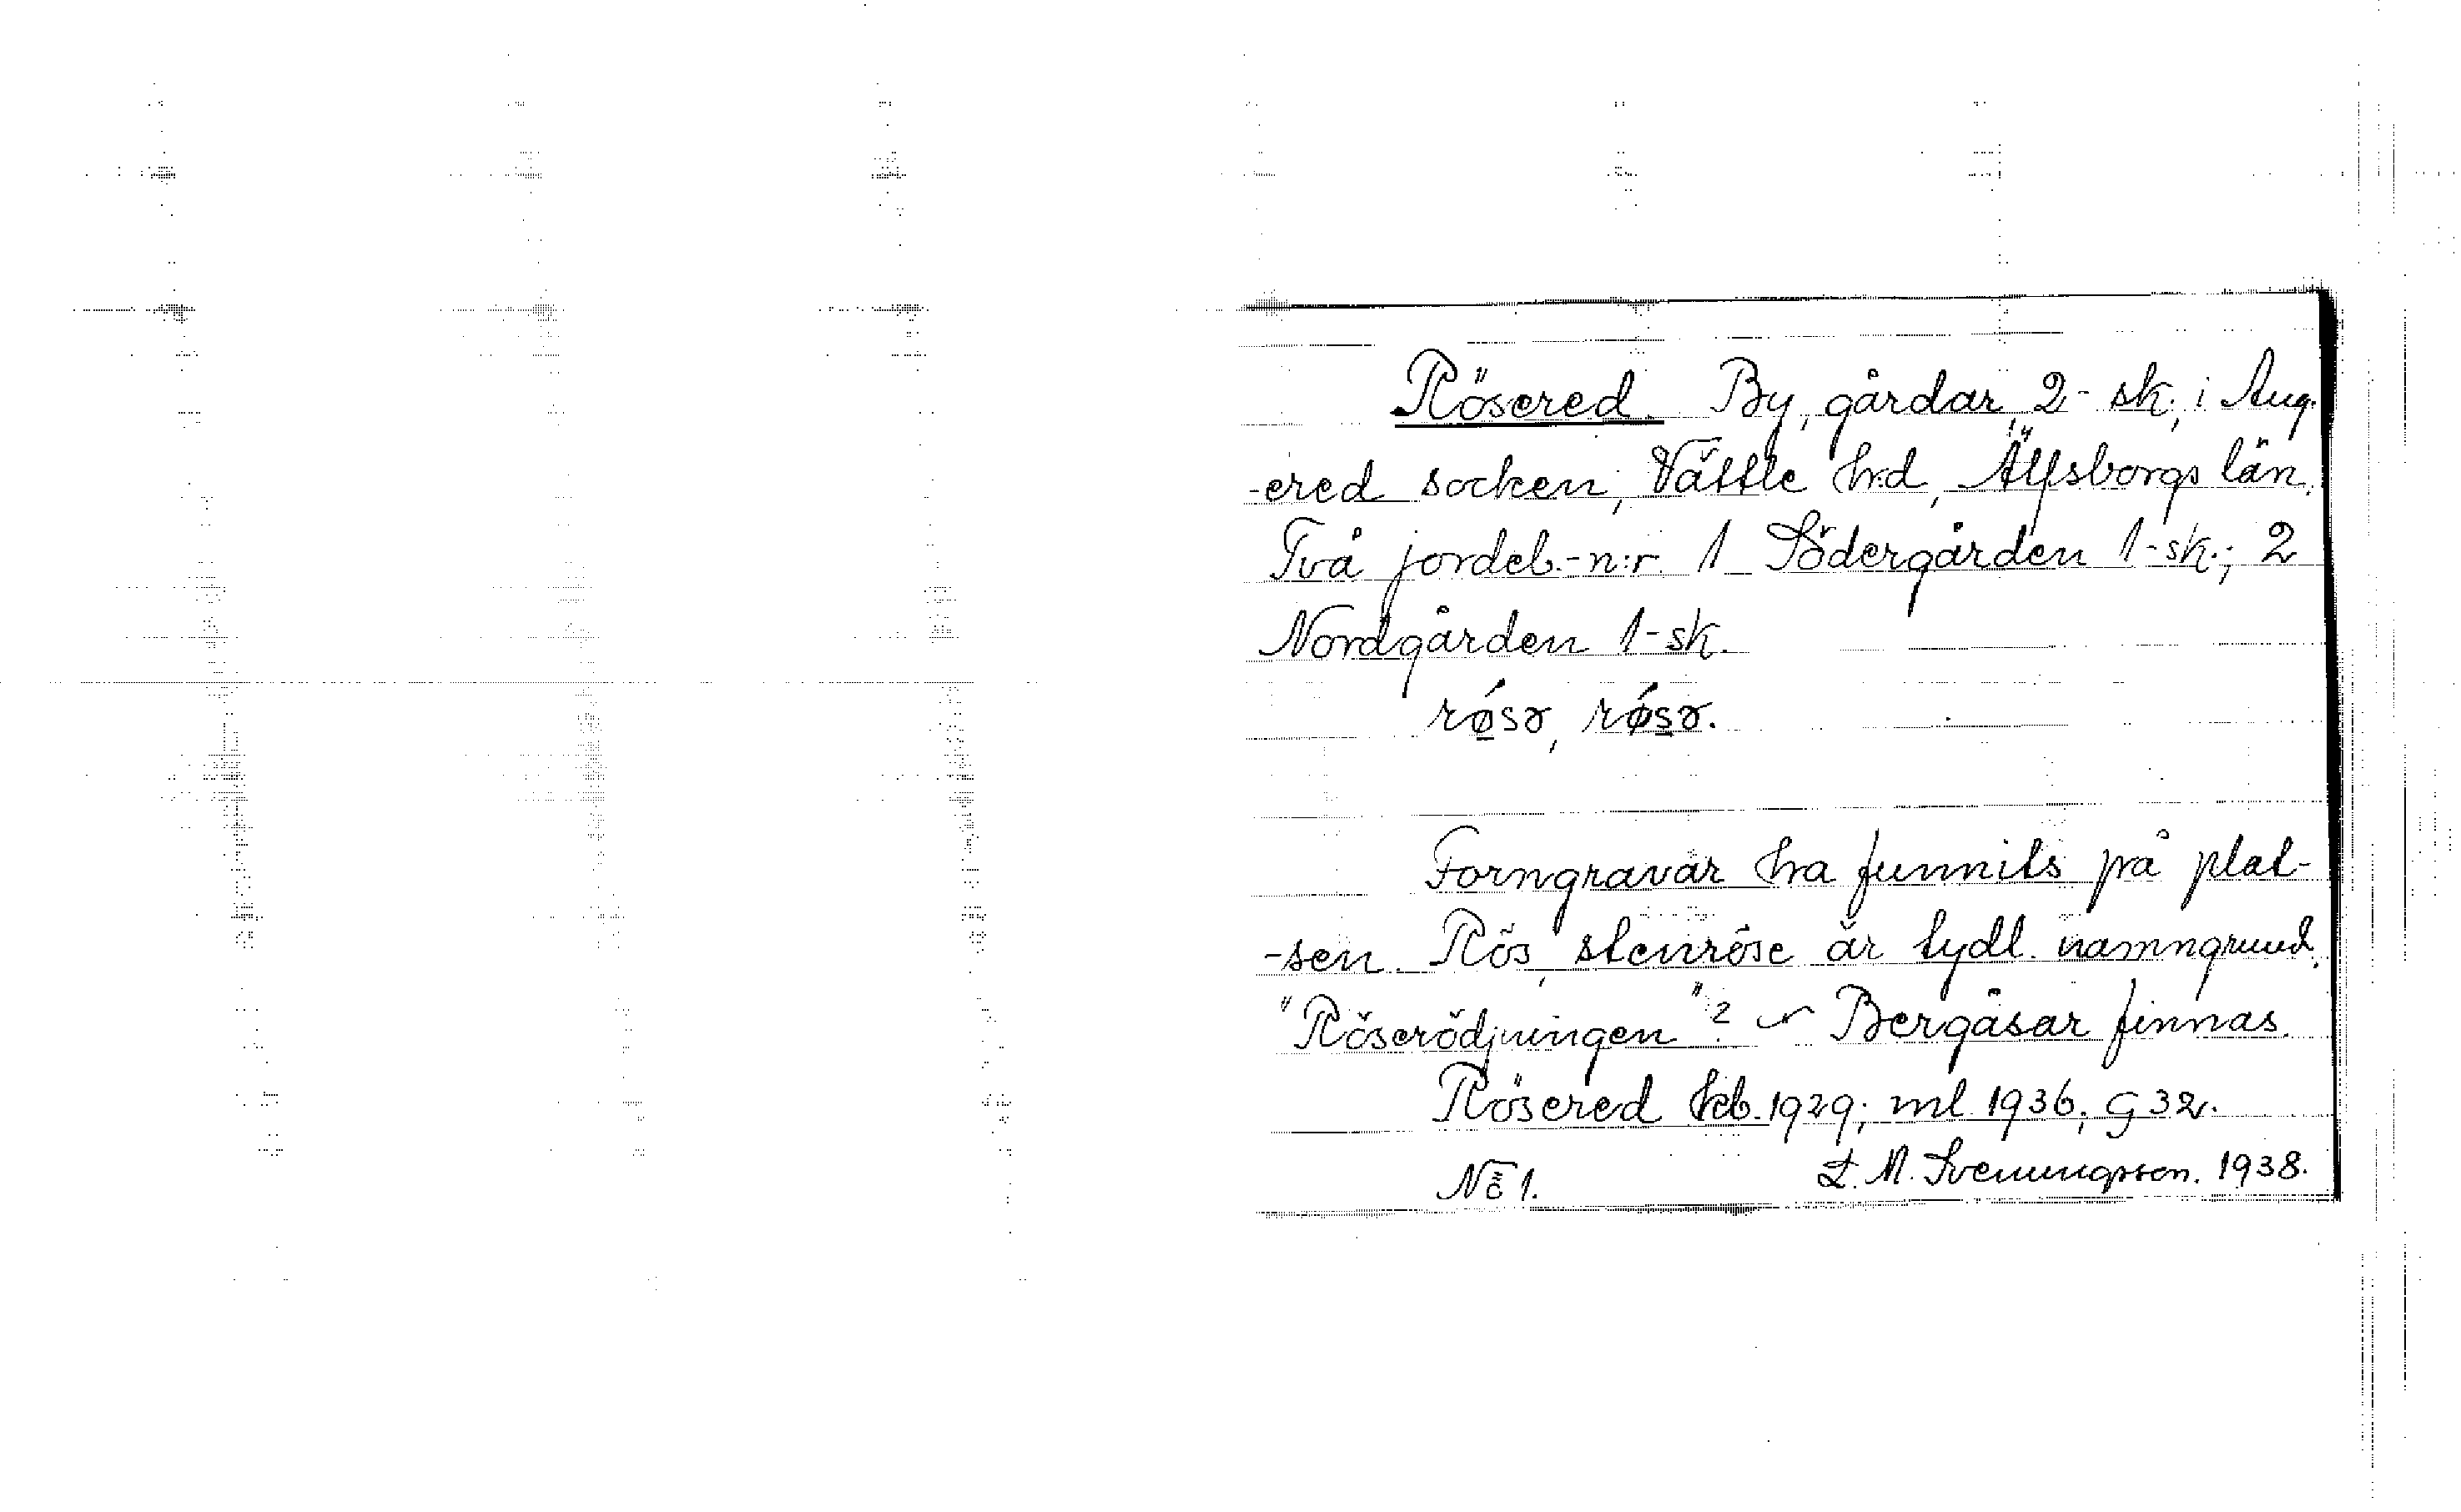 Rösered. By, gårdar, 2-sk., i Aug-
-ered socken, Vättle hrd, Älfsborgs län.
Två jordeb.-n:r. 1 Södergården 1-sk.; 2
Nordgården 1-sk.
røsɤ, røsɤ.
Forngravar ha funnits på plat-
-sen. Rös, stenröse är tydl. namngrund.
"Röserödjningen"? ~ Bergåsar finnas.
Rösered kb. 1929; ml. 1936; G 32.
No 1. L. M. Svenungsson. 1938.